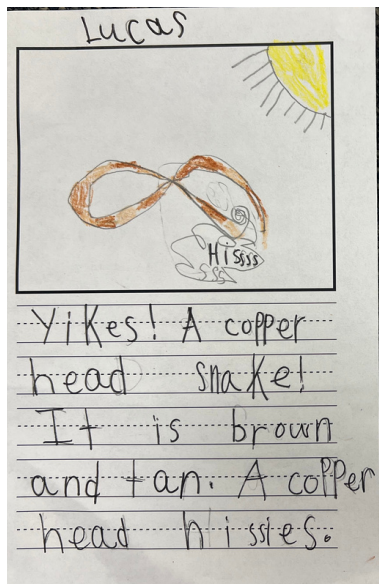 Lucas
Hissss
ssss
Yikes! A copper
head snake!
It is brown
and tan. A copper
head hissies.